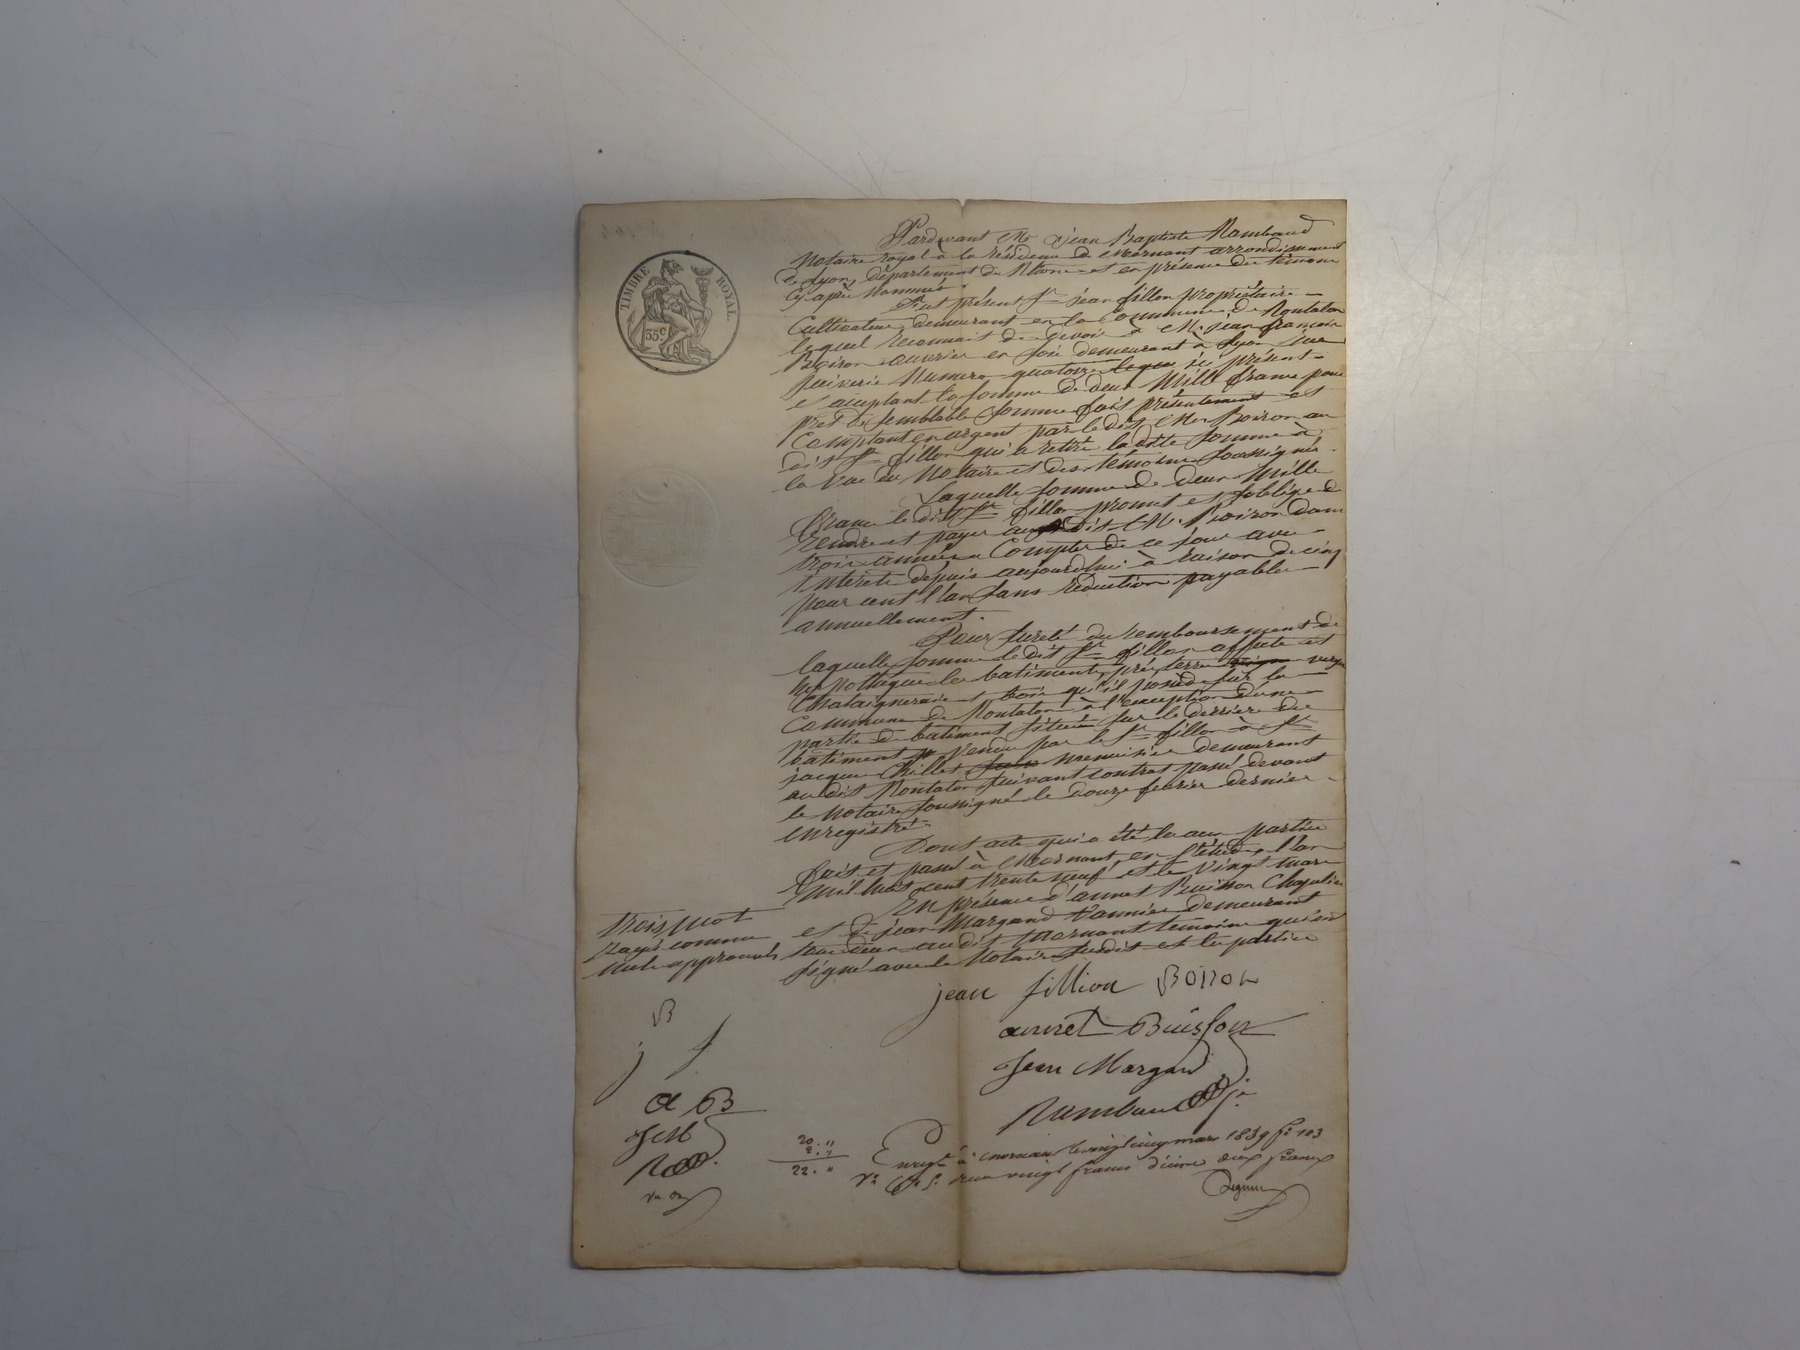 TIMBRE ROYAL.
35.C
Pardevant Me Jean Baptiste Rambaud
Notaire royal à la résidence de Mornant arrondissement
de Lyon, département du Rhone et en présence des témoins
Cy après Nommés.
Fut présent Sr jean fillon propriétaire
Cultivateur demeurant en la Commune de Rontalon
lequel reconnait de devoir à Mr. jean françois
Boiron ouvrier en soie demeurant à Lyon rue
Numero quatorze ici présent
et acceptant la somme de deux Mille francs pour
prêt de semblable somme fait présentement et
Comptant en argent par le dit Mr Boiron au
dit Sr fillon qui a retiré la ditte somme à
la Vue du Notaire et des témoins soussignés.
Laquelle somme de deux Mille
francs le dit Sr fillon promet et s'oblige de
rendre et payer au dit Mr. Boiron dans
trois années a Compter de ce jour avec
Intérêts depuis aujourdhui à raison de cinq
pour cent l'an sans réduction payables
annuellement.
Pour sureté du remboursement de
laquelle somme le dit Sr fillon affecte et
hypothèque les batiments, pré, terre verger
Chataigneraie et bois qu'il possède sur la
Commune de Rontalon à l'exception d'une
partie de batiment située sur le derrière du
batiment Vendu par le Sr fillon à Sr
jacque Chillet menuisier demeurant
au dit Rontalon suivant contrat passé devant
le Notaire soussigné le douze février dernier
enregistré.
Dont acte qui a été lu aux parties
fait et passé à Mornant, en l'étude, l'an
Mil huit cent trente neuf et le Vingt mars
En présence d'annet Buisson Chapelier
et de jean Margand Vannier demeurant
tous deux au dit Mornant temoins qui ont
signé avec le Notaire susdit et les parties
trois mot
rayés comme
nuls approuvés
jean fillion Boiron
annet Buisson
Jean Margand
Rambaud jne
B
j f
a B
JeM
R
20. "
2. "
22. "
Enregté à Mornant le vingt cinq mars 1839 fo 103
Vo Ce 5. reçu vingt francs décime deux francs